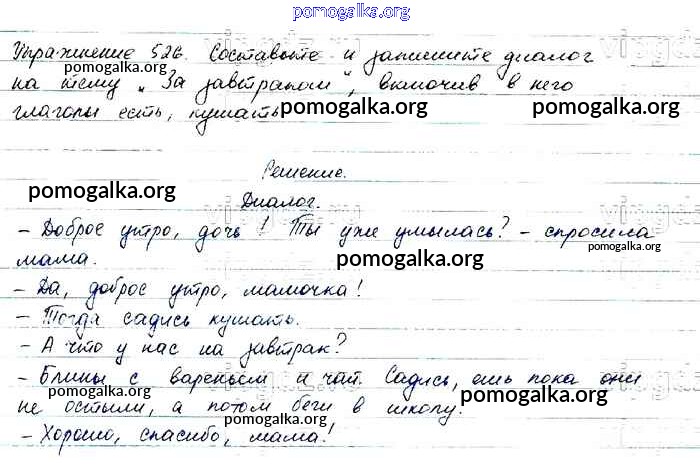 pomogalka.org
Упражнение 526. Составьте и запишите диалог
pomogalka.org
на тему „За завтраком“, включив в него
pomogalka.org pomogalka.org
глаголы есть, кушать.
Решение.
pomogalka.org
Диалог.
- Доброе утро, дочь! Ты уже умылась? - спросила
pomogalka.org
мама.
pomogalka.org
- Да, доброе утро, мамочка!
- Тогда садись кушать.
pomogalka.org
pomogalka.org
- А что у нас на завтрак?
- Блины с вареньем и чай. Садись, ешь пока они
не остыли, а потом беги в школу.
pomogalka.org
pomogalka.org
- Хорошо, спасибо, мама!
pomogalka.org